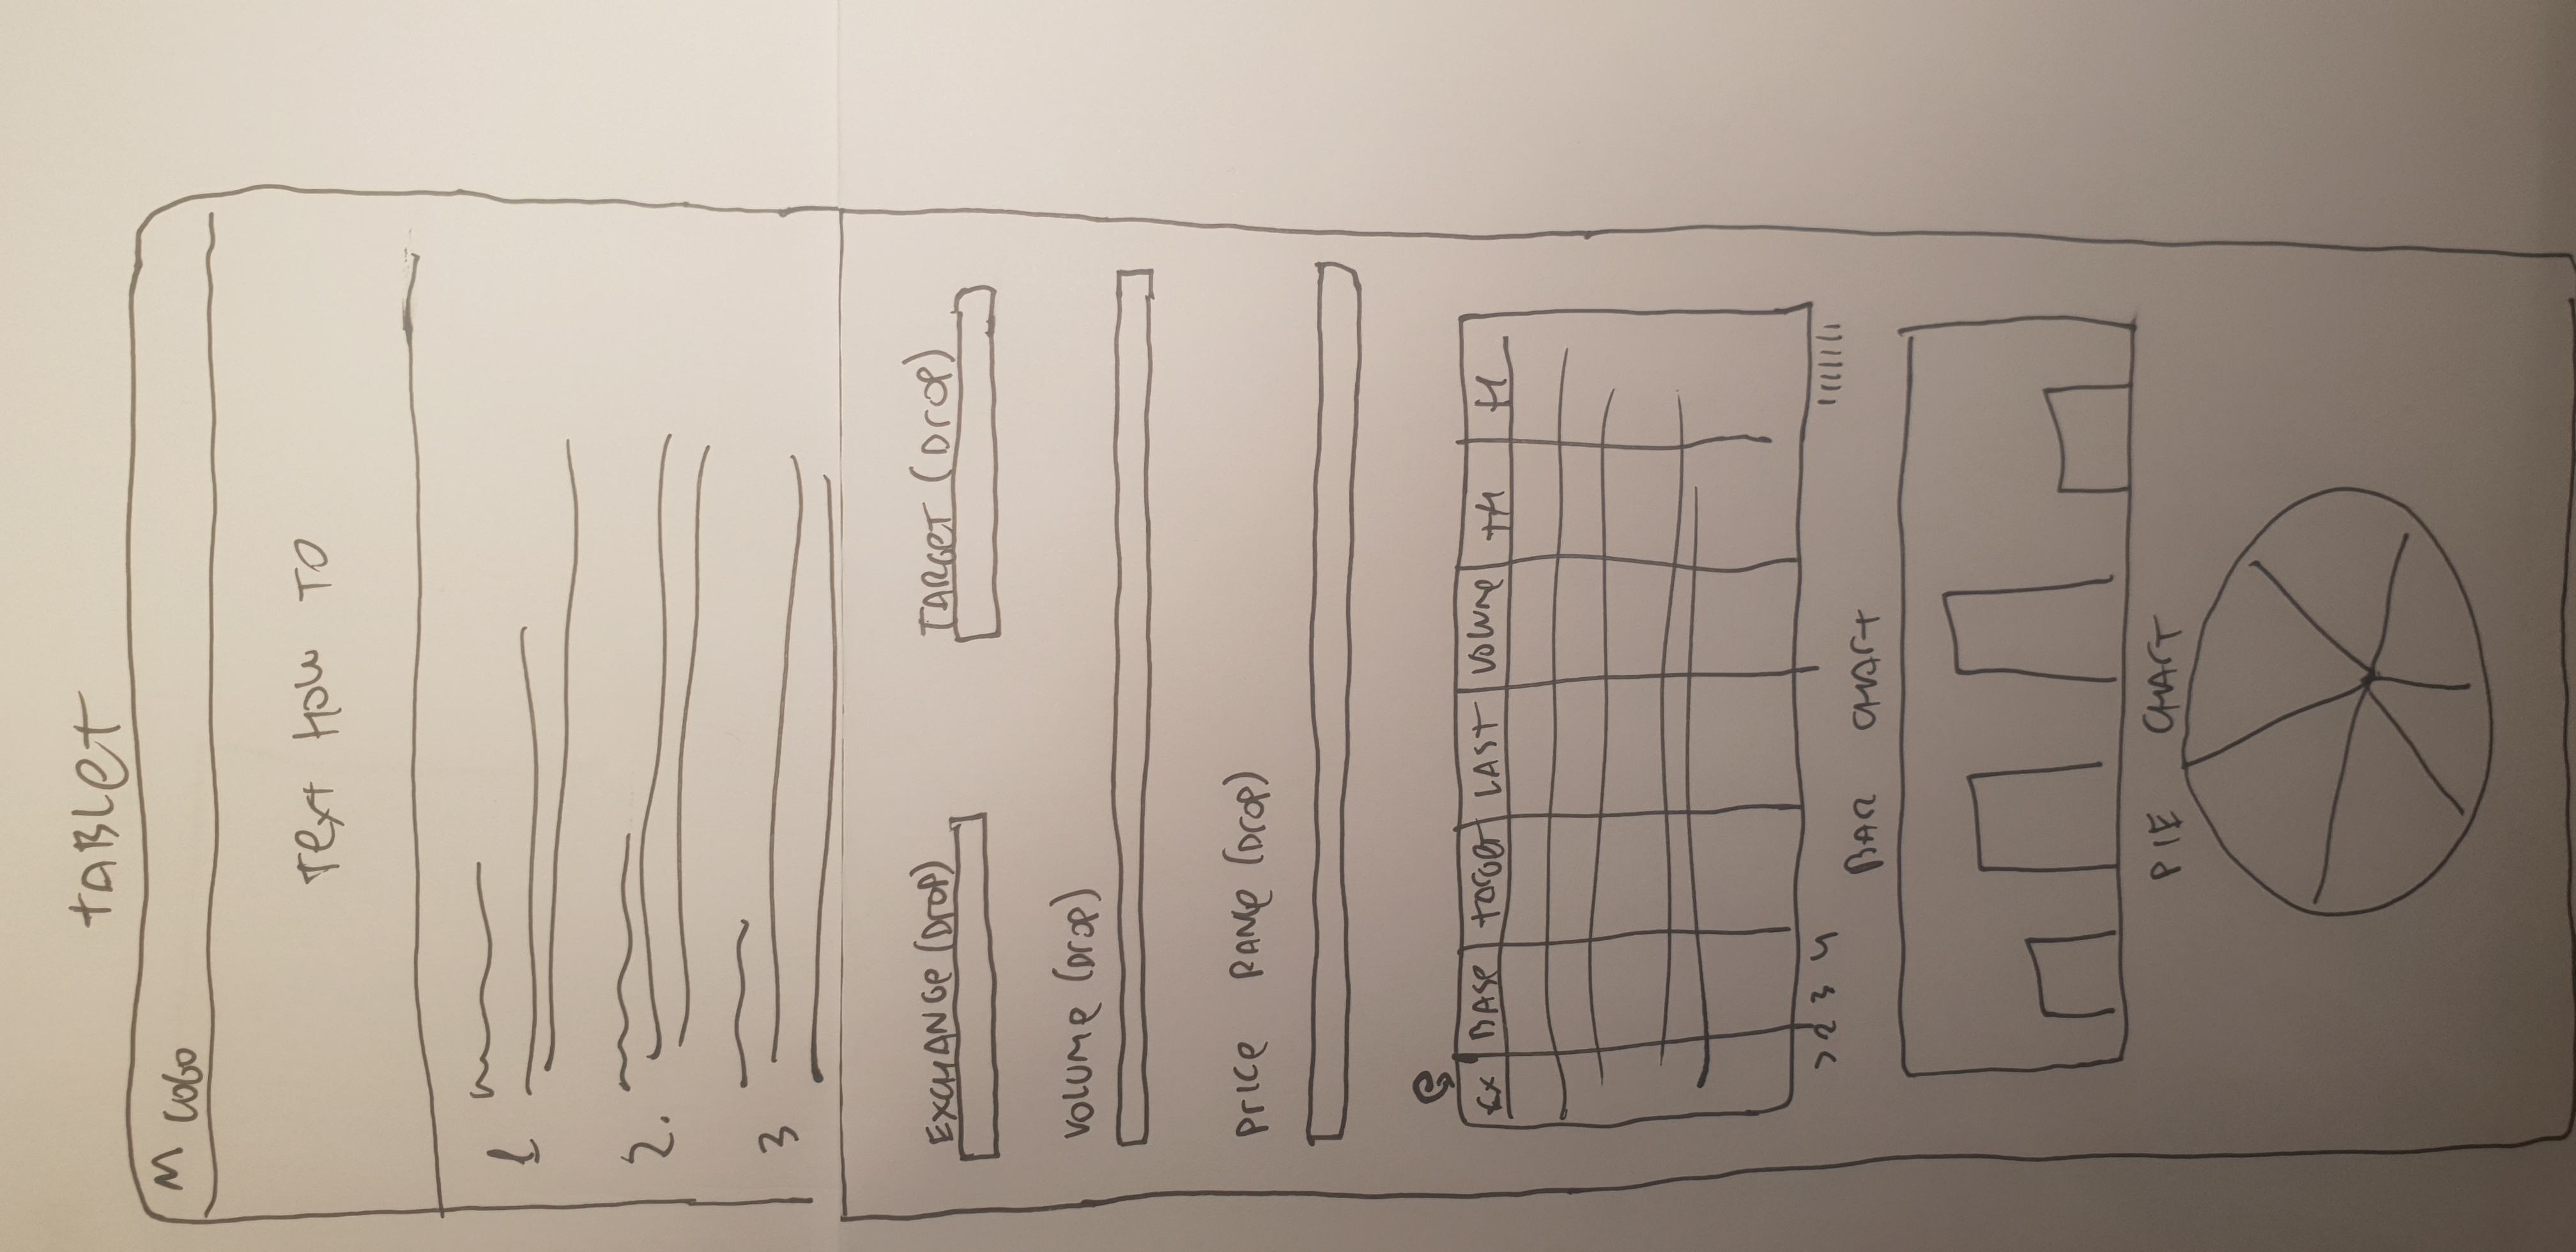 TABLET
M LOGO
TEXT HOW TO
1
2.
3
EXCHANGE (DROP) TARGET (DROP)
VOLUME (DROP)
PRICE RANGE (DROP)
EX BASE TARGET LAST VOLUME TH H
> 2 3 4
BAR CHART
PIE CHART